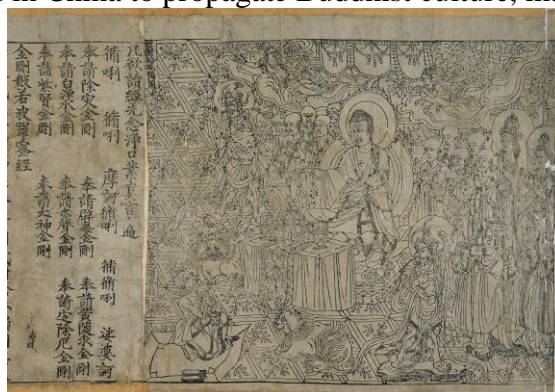 in China to propagate Buddhist culture,
凡欲讀經先念淨口業真言一遍
脩唎 脩唎 摩訶脩唎 脩脩唎 娑婆訶
奉請除灾金剛 奉請辟毒金剛 奉請黃隨求金剛
奉請白淨水金剛 奉請赤聲金剛 奉請定除厄金剛
奉請紫賢金剛 奉請大神金剛
金剛般若波羅蜜經